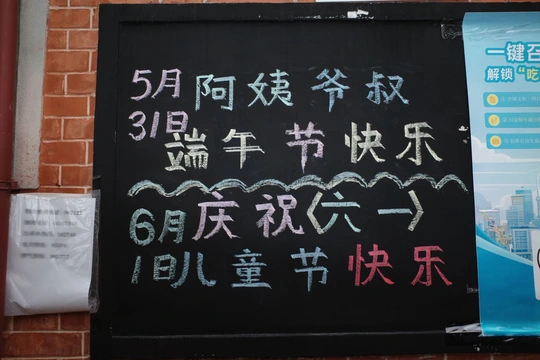 5月
31日
阿姨爷叔
端午节快乐
6月
1日
庆祝〈六一〉
儿童节快乐
一键召
解锁“吃